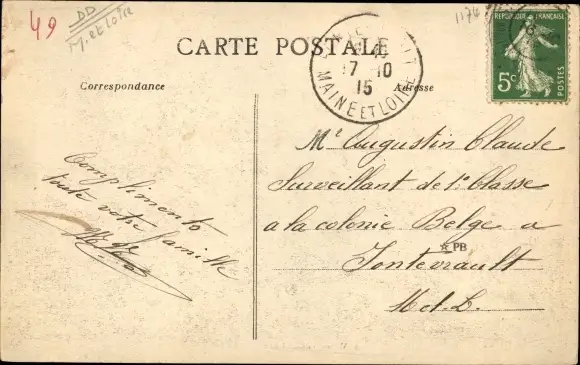 49
DD
M. et Loire
1174
CARTE POSTALE
Correspondance
Adresse
17 - 10
15
MAINE ET LOIRE
REPUBLIQUE FRANÇAISE
5c
POSTES
Compliments
toute votre famille
Mr Augustin Claude
Surveillant de 1e Classe
a la colonie Belge a
☆ PB
Fontevrault
M et L.